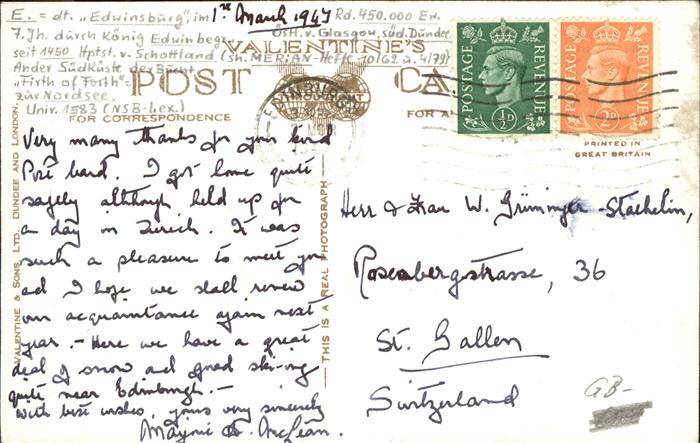 E. = dt. "Edwinsburg", im 1st March 1947 Rd. 450.000 Ew.
7. Jh. durch König Edwin begr. Östl. v. Glasgow, süd. Dundee
seit 1450 Hptst. v. Schottland (sh. MERIAN-Hefte 10/62 u. 4/79)
An der Südküste der Bucht
"Firth of Forth"-
zur Nordsee
Univ. 1583 (NSB-Lex.)
VALENTINE'S
POST CA
FOR CORRESPONDENCE FOR A
EDINBURGH
POSTAGE REVENUE ½D
POSTAGE REVENUE 2D
PRINTED IN
GREAT BRITAIN
VALENTINE & SONS, LTD. DUNDEE AND LONDON.
THIS IS A REAL PHOTOGRAPH
Very many thanks for your kind
Post card. I got home quite
safely although held up for
a day in Zurich. It was
such a pleasure to meet you
and I hope we shall renew
our acquaintance again next
year. - Here we have a great
deal of snow and good ski-ing
quite near Edinburgh. -
With best wishes, yours very sincerely
McLean.
Herr & Frau W. Grüninger-Staehelin,
Rosenbergstrasse, 36
St. Gallen
Switzerland
GB-